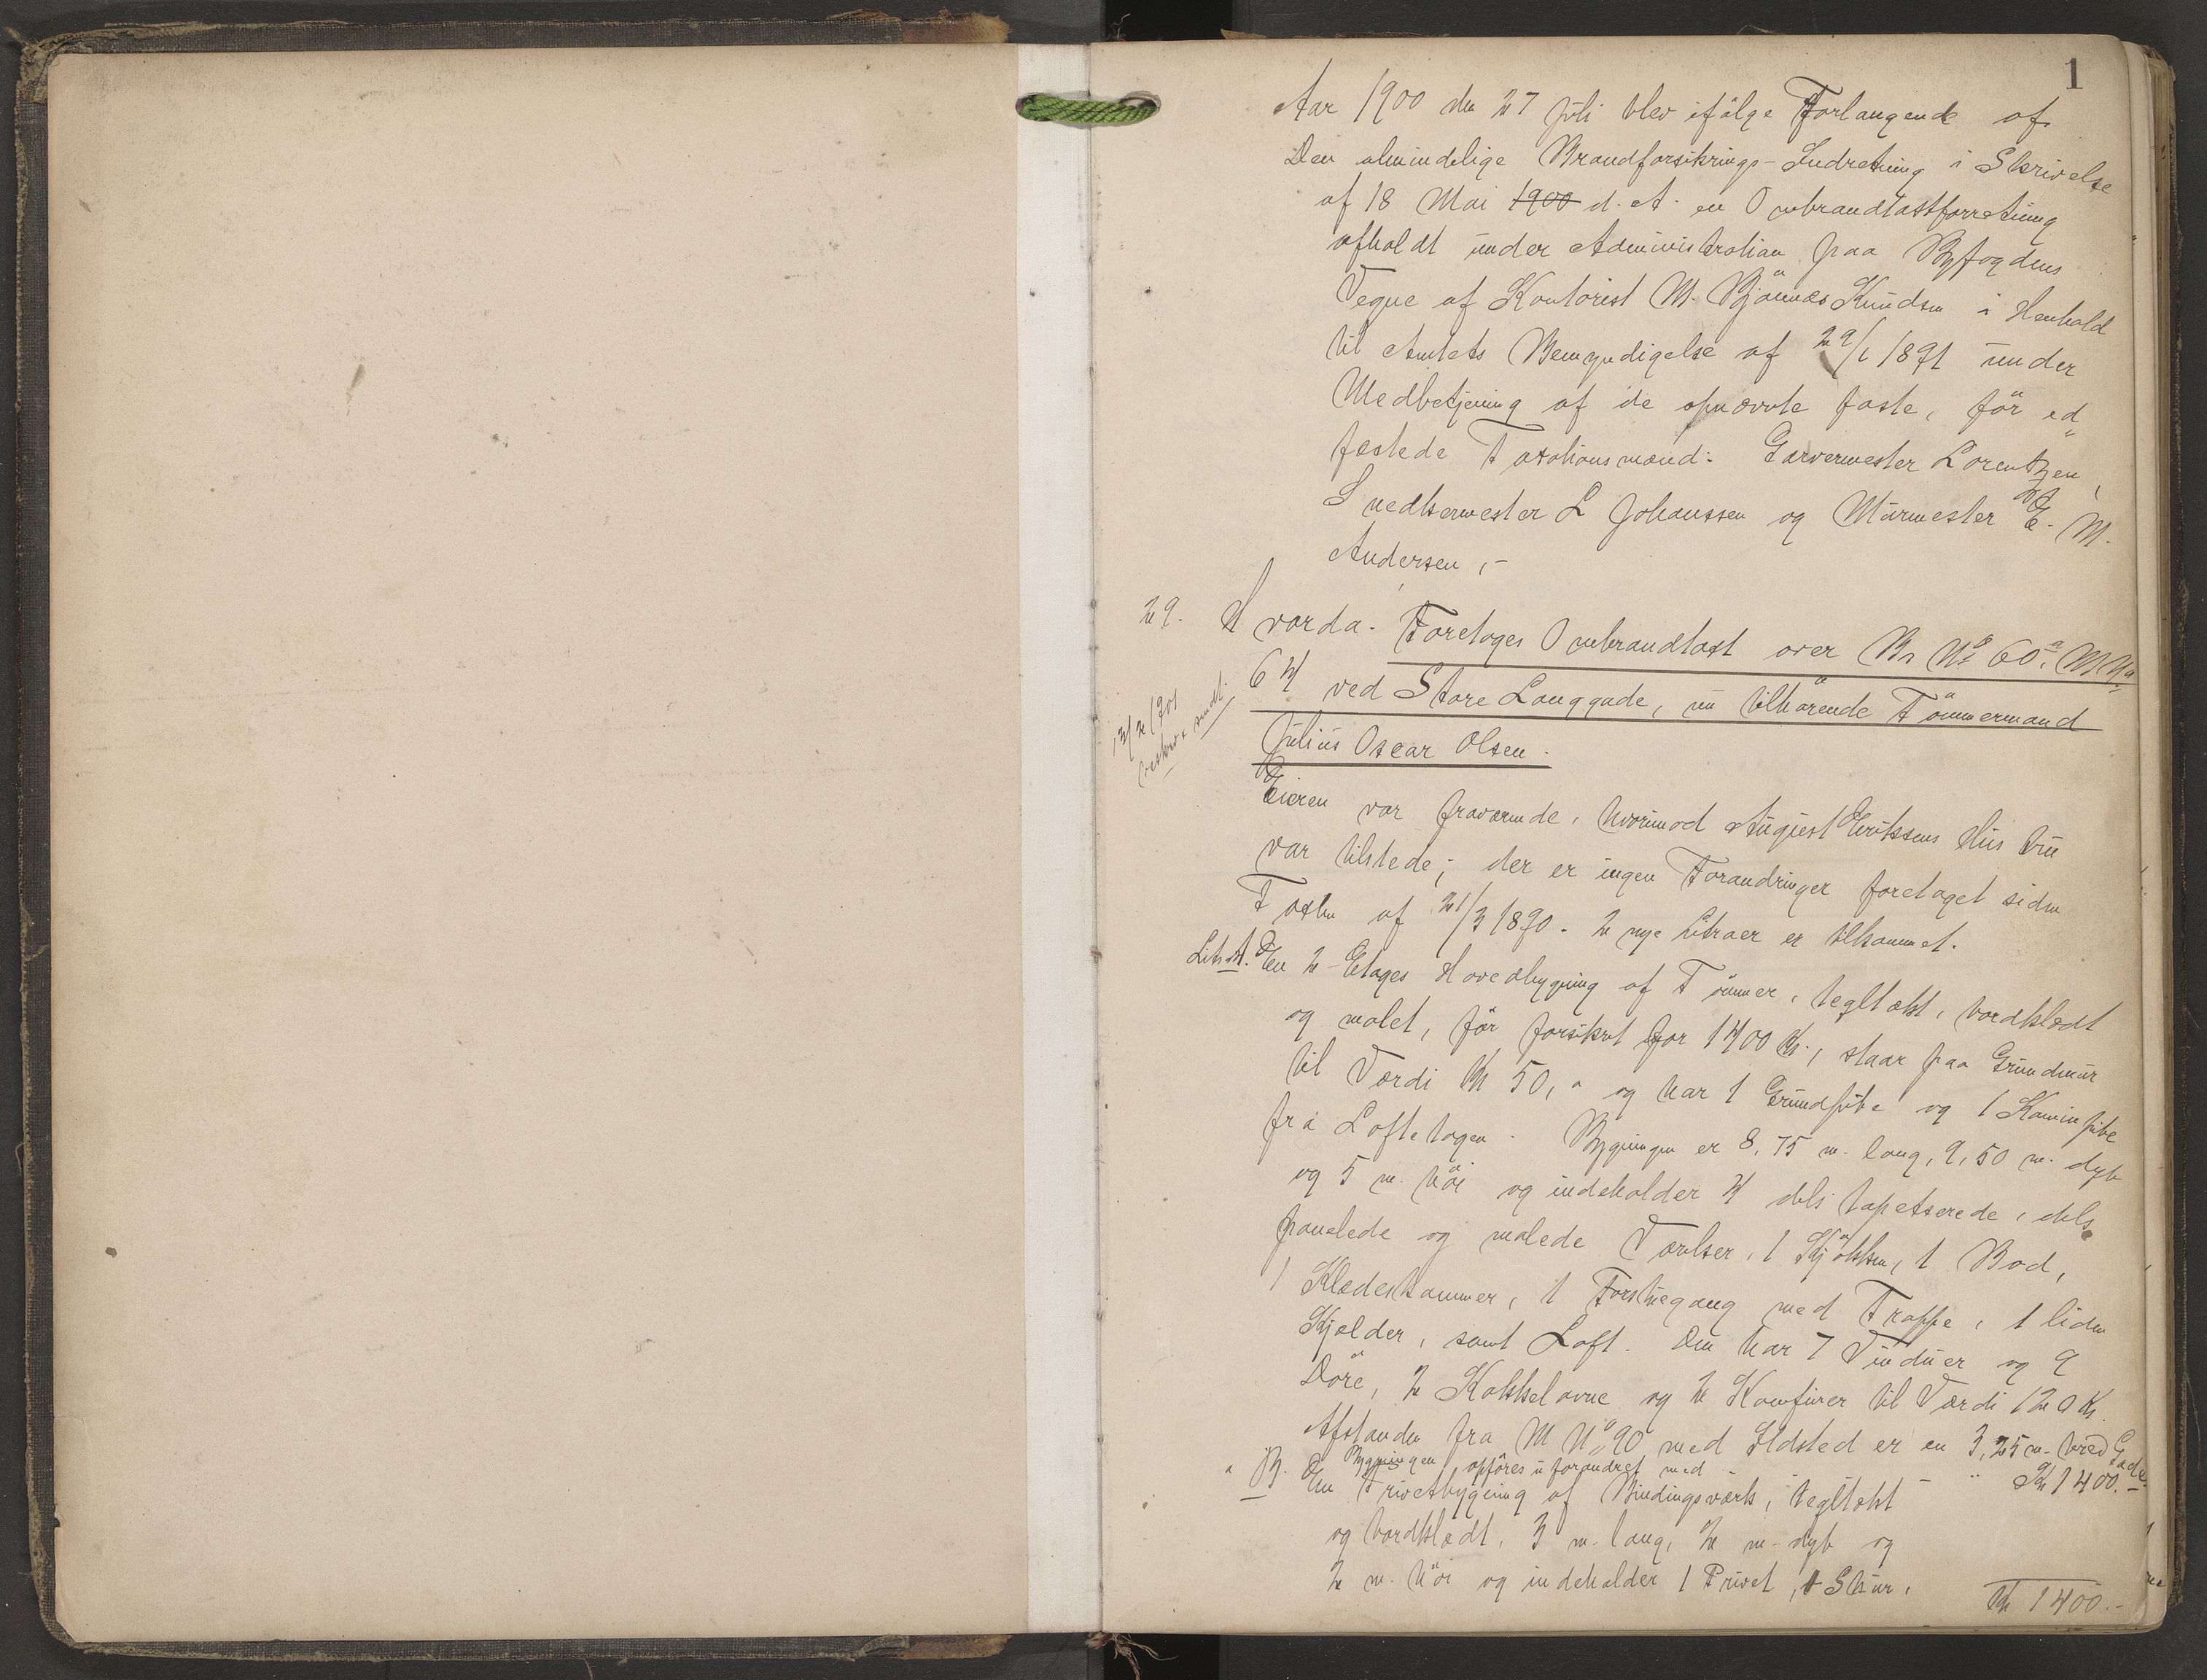 1
Aar 1900 den 27 Juli blev ifölge Forlangende af
Den almindelige Brandforsikrings-Indretning i Skrivelse
af 18 Mai 1900 d. A. en Ombrandtaxtforretning
afholdt under Administration paa Byfogdens
Vegne af Kontorist M. Bjönnes Knudsen i Henhold
til Amtets Bemyndigelse af 29/1 1891 under
Medbetjening af de opnævnte faste, för ed-
fæstede Taxationsmænd: Garvermester Lorentzen,
Snedkermester L Johanssen og Murmester E. M.
Andersen,-
29. Hvorda. Foretoges Ombrandtaxt over Br No 60a, M No
64 ved Store Langgade, nu tilhörende Tömmermand
Julius Oscar Olsen.
13/2/901
beskr. sendt.
Eieren var fraværende, hvorimod August Eriksens Hustru
var tilstede; der er ingen Forandringer foretaget siden
Taxten af 21/3 1890. 2 nye Litraer er tilkommet.
Litr A. En 2-Etages Hovedbygning af Tömmer, tegltækt, bordklædt
og malet, för forsikret for 1400 Kr., staar paa Grundmur
til Værdi Kr 50,- og har 1 Grundpibe og 1 Kaminpibe
fra Loftetagen. Bygningen er 8,75 m. lang, 9,50 m. dyb
og 5 m. höi og indeholder 4 dels tapetserede, dels
panelede og malede Værelser, 1 Kjökken, 1 Bod,
1 Klædeskammer, 1 Forstuegang med Trappe, 1 liden
Kjælder, samt Loft. Den har 7 Vinduer og 9
Döre, 2 Kakkelovne og 2 Komfurer til Værdi 120 Kr.
Afstanden fra M No 90 med Ildsted er en 3,25 m. bred Gade.
Bygningen opföres uforandret med " Kr 1400.-
" B. En Privetbygning af Bindingsværk, tegltækt
og bordklædt, 3 m. lang, 2 m. dyb og
2 m. höi og indeholder 1 Privet, 1 Skur,
Kr 1400.-